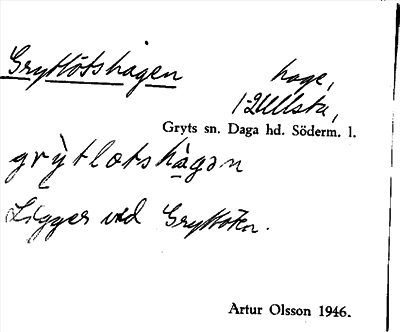 Grytlötshagen
hage,
12 Ullsta,
Gryts sn. Daga hd. Söderm. l.
grỳtlœtshàgən
Ligger vid Grytlöten.
Artur Olsson 1946.